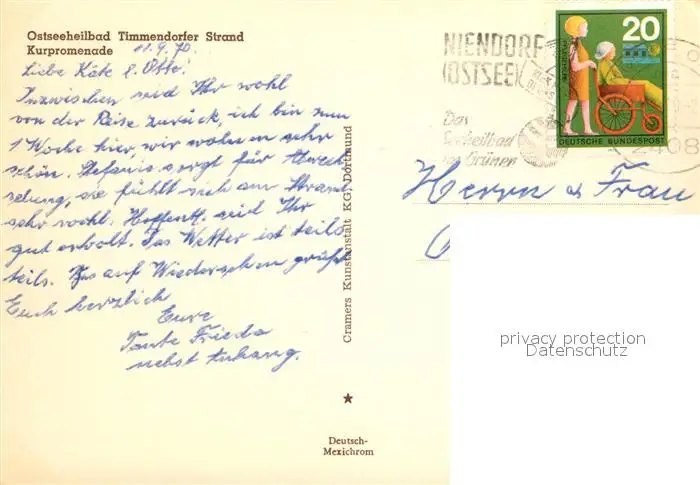 Ostseeheilbad Timmendorfer Strand
Kurpromenade
11.9.70.
Liebe Käte u. Otto!
Inzwischen seid Ihr wohl
von der Reise zurück, ich bin nun
1 Woche hier, wir wohnen sehr
schön. Stefanie sorgt für Abwech
selung, sie fühlt sich am Strand
sehr wohl. Hoffentl. seid Ihr
gut erholt. Das Wetter ist teils
teils. Bis auf Wiedersehen grüßt
Euch herzlich
Eure
Tante Frieda
nebst Anhang.
Cramers Kunstanstalt KG. Dortmund
Deutsch-
Mexichrom
NIENDORF
(OSTSEE)
Das
Seeheilbad
im Grünen
20
DEUTSCHE BUNDESPOST
2408
Herrn u. Frau
privacy protection
Datenschutz